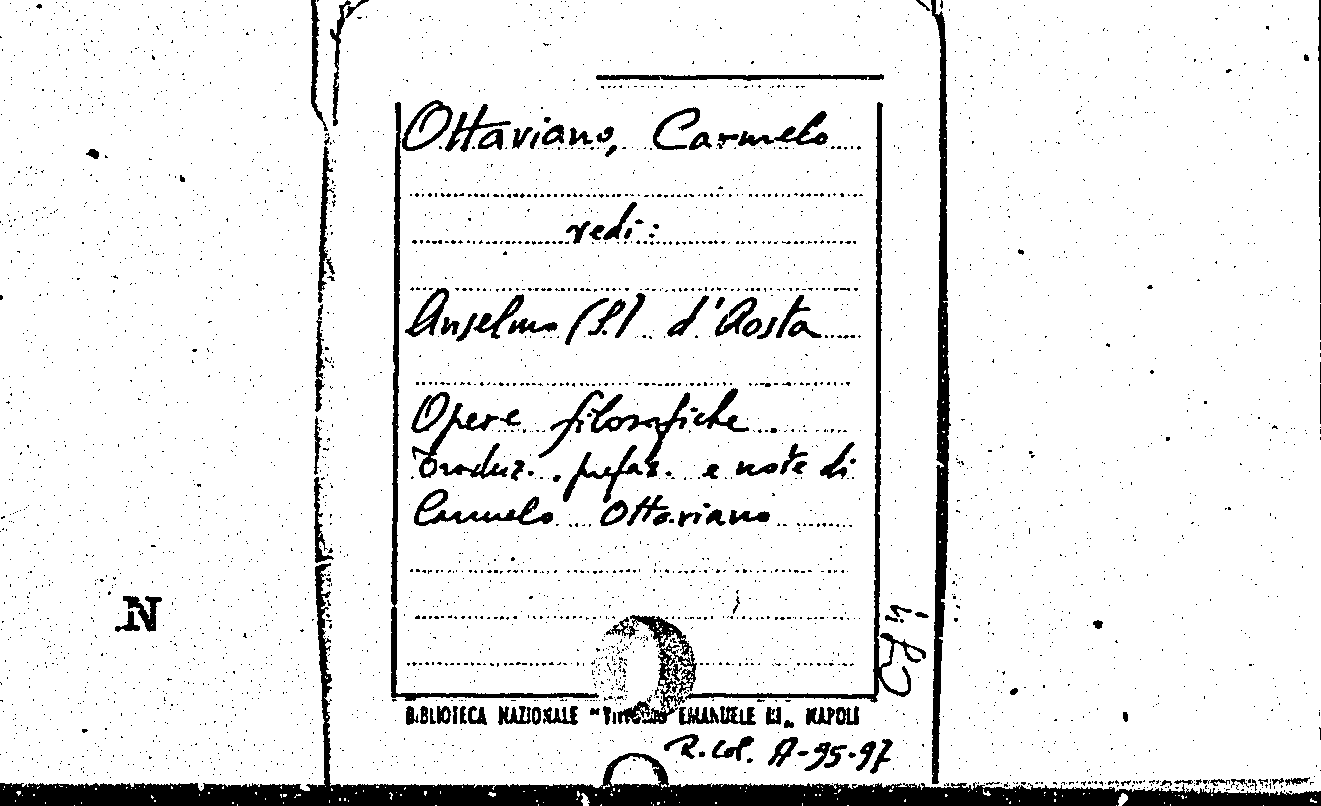 Ottaviano, Carmelo
vedi:
Anselmo (S.) d'Aosta
Opere filosofiche.
Traduz., prefaz. e note di
Carmelo Ottaviano
N
BIBLIOTECA NAZIONALE "VITTORIO EMANUELE III„ NAPOLI
R. Col. A-95-97